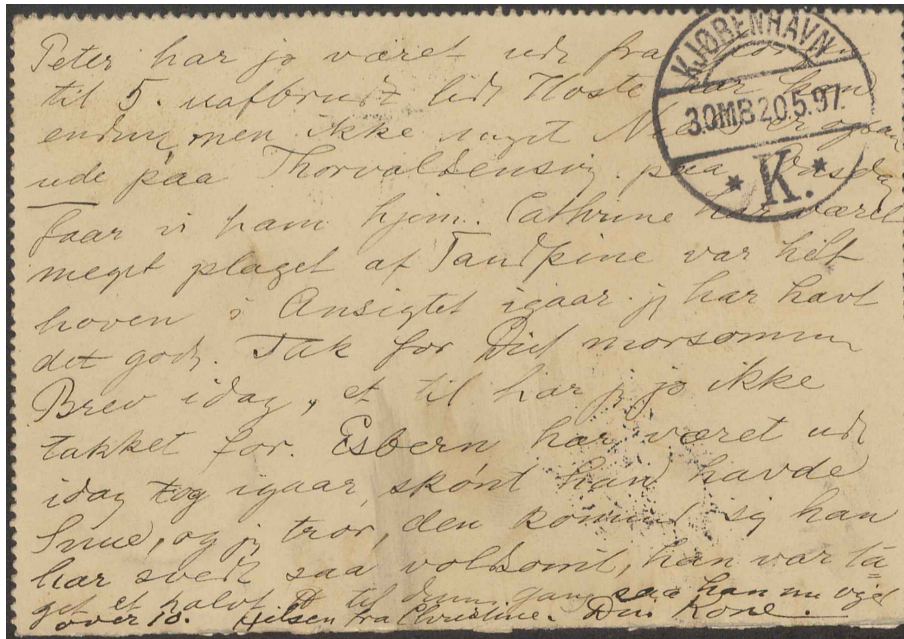 Peter har jo været ude fra
til 5. uafbrudt lidt Hoste har han
endnu, men ikke noget
ude paa Thorvaldsensvej. paa Onsdag
faar vi ham hjem. Cathrine har været
meget plaget af Tandpine var helt
hoven i Ansigtet igaar. jeg har havt
det godt. Tak for Dit morsomme
Brev idag, et til har jeg jo ikke
takket for. Esbern har været ude
idag og igaar, skönt han havde
Snue, og jeg tror, den kommer sig han
har svedt saa voldsomt, han var ta-
get et halvt til denne gang saa han nu vejer
over 10. Hilsen fra Christine. Din Kone.
KJØBENHAVN
3.OMB 20.5.97.
*K.*